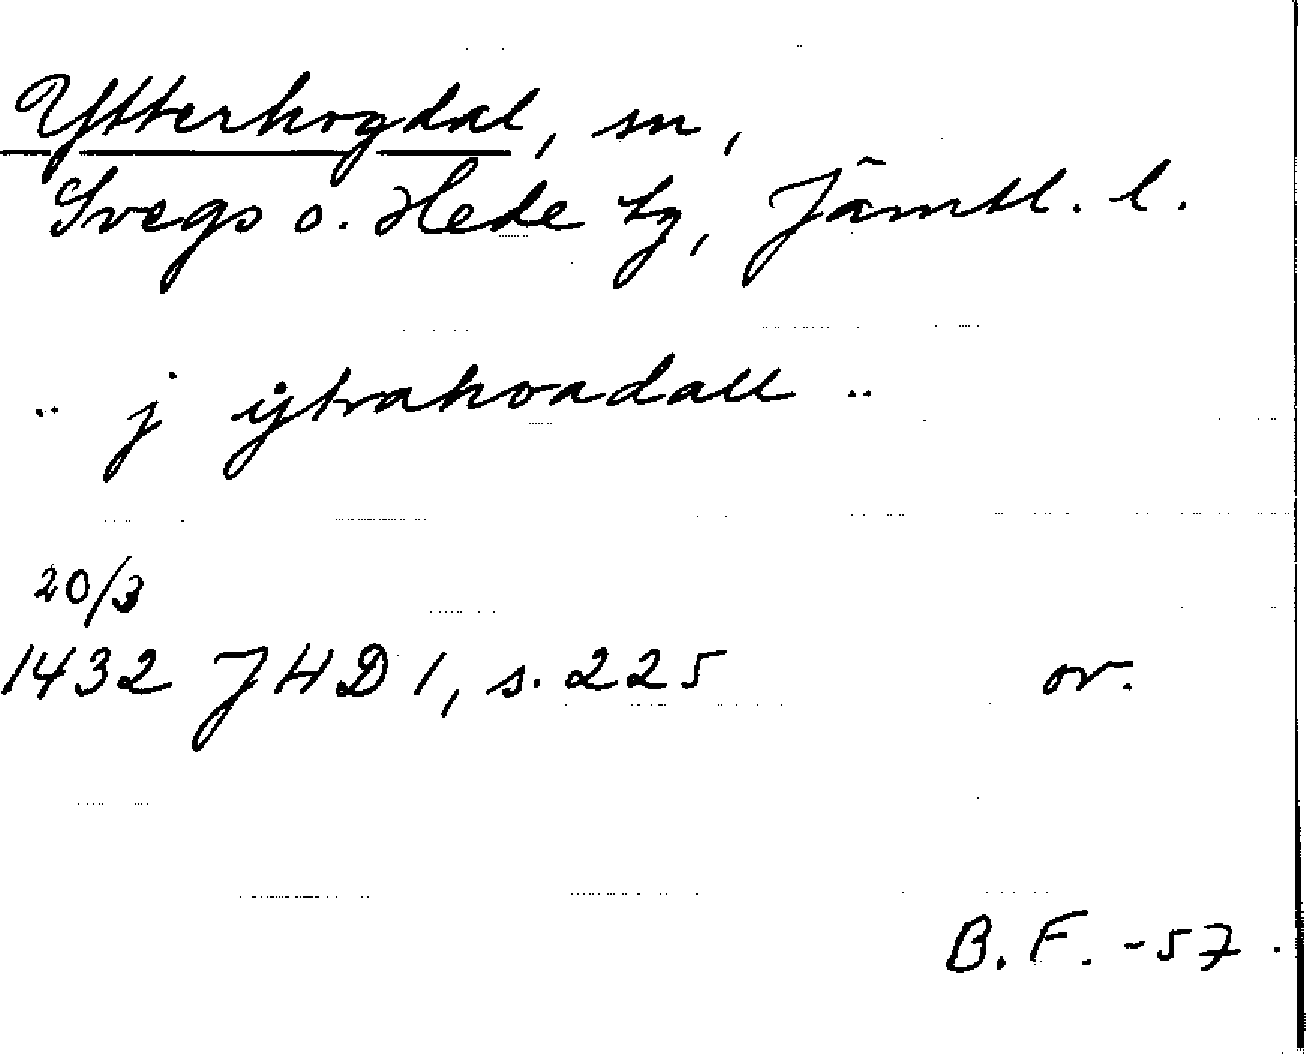 Ytterhogdal, sn,
Svegs o. Hede tg, Jämtl. l.
.. j ẏtrahoadall ..
20/3
1432 JHD 1, s. 225 or.
B. F. -57.